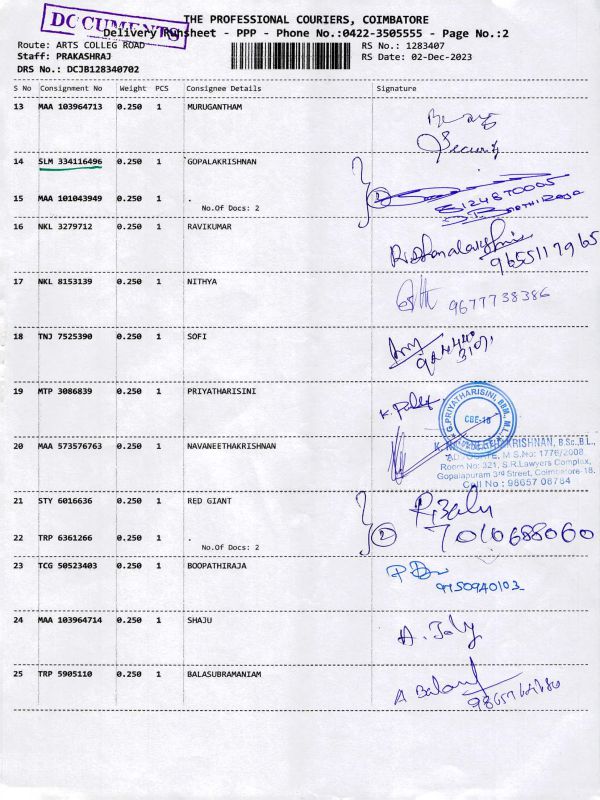 DOCUMENTS
THE PROFESSIONAL COURIERS, COIMBATORE
Delivery Runsheet - PPP - Phone No.:0422-3505555 - Page No.:2
Route: ARTS COLLEG ROAD
RS No.: 1283407
Staff: PRAKASHRAJ
RS Date: 02-Dec-2023
DRS No.: DCJB128340702
S No Consignment No Weight PCS Consignee Details Signature
13 MAA 103964713 0.250 1 MURUGANTHAM
Security
14 SLM 334116496 0.250 1 GOPALAKRISHNAN
2
15 MAA 101043949 0.250 1 .
No.Of Docs: 2
16 NKL 3279712 0.250 1 RAVIKUMAR
9655117965
17 NKL 8153139 0.250 1 NITHYA
9677738386
18 TNJ 7525390 0.250 1 SOFI
19 MTP 3086839 0.250 1 PRIYATHARISINI
G.PRIYATHARISINI, BBM., M.L.
CBE-18
20 MAA 573576763 0.250 1 NAVANEETHAKRISHNAN
KRISHNAN, B.Sc.,B.L.,
M.S.No: 1776/2008
Room No: 321, S.R.Lawyers Complex,
Gopalapuram 3rd Street, Coimbatore-18.
Cell No : 98657 08784
21 STY 6016636 0.250 1 RED GIANT
R. Balu
22 TRP 6361266 0.250 1 .
2
7010688060
No.Of Docs: 2
23 TCG 50523403 0.250 1 BOOPATHIRAJA
9750940103
24 MAA 103964714 0.250 1 SHAJU
A. Joly
25 TRP 5905110 0.250 1 BALASUBRAMANIAM
A Balan